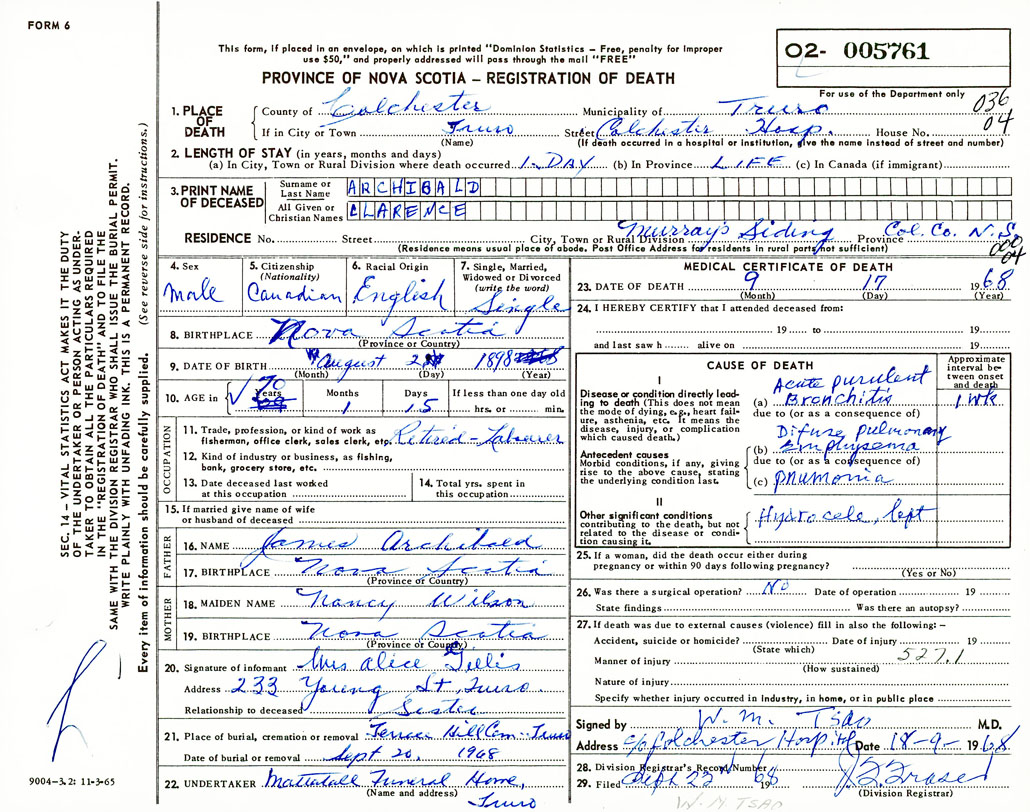 FORM 6
This form, if placed in an envelope, on which is printed "Dominion Statistics – Free, penalty for improper
use $50," and properly addressed will pass through the mail "FREE"
O2- 005761
PROVINCE OF NOVA SCOTIA – REGISTRATION OF DEATH
For use of the Department only
036
04
1. PLACE OF DEATH County of Colchester Municipality of Truro
If in City or Town Truro Street Colchester Hosp. House No.
(Name) (If death occurred in a hospital or institution, give the name instead of street and number)
2. LENGTH OF STAY (in years, months and days)
(a) In City, Town or Rural Division where death occurred 1-DAY (b) In Province LIFE (c) In Canada (if immigrant)
3. PRINT NAME OF DECEASED Surname or Last Name ARCHIBALD
All Given or Christian Names CLARENCE
RESIDENCE No. Street City, Town or Rural Division Murray's Siding Province Col. Co. N.S.
(Residence means usual place of abode. Post Office Address for residents in rural parts not sufficient)
000
04
4. Sex Male
5. Citizenship (Nationality) Canadian
6. Racial Origin English
7. Single, Married, Widowed or Divorced (write the word) Single
8. BIRTHPLACE Nova Scotia
(Province or Country)
9. DATE OF BIRTH August 2 1898
(Month) (Day) (Year)
10. AGE in 70 Years Months 1 Days 15 If less than one day old hrs. or min.
OCCUPATION
11. Trade, profession, or kind of work as
fisherman, office clerk, sales clerk, etc. Retired - Labourer
12. Kind of industry or business, as fishing,
bank, grocery store, etc.
13. Date deceased last worked
at this occupation
14. Total yrs. spent in
this occupation
15. If married give name of wife
or husband of deceased
FATHER
16. NAME James Archibald
17. BIRTHPLACE Nova Scotia
(Province or Country)
MOTHER
18. MAIDEN NAME Nancy Wilson
19. BIRTHPLACE Nova Scotia
(Province or Country)
20. Signature of informant Mrs Alice Gillis
Address 233 Young St, Truro.
Relationship to deceased Sister
21. Place of burial, cremation or removal Terrace Hill Cem - Truro
Date of burial or removal Sept 20, 1968
22. UNDERTAKER Mattatall Funeral Home,
(Name and address) Truro
MEDICAL CERTIFICATE OF DEATH
23. DATE OF DEATH 9 17 1968
(Month) (Day) (Year)
24. I HEREBY CERTIFY that I attended deceased from:
19 to 19
and last saw h alive on 19
CAUSE OF DEATH
Approximate interval between onset and death
I
Disease or condition directly lead-
ing to death (This does not mean
the mode of dying, e.g., heart fail-
ure, asthenia, etc. It means the
disease, injury, or complication
which caused death.)
Acute purulent
(a) Bronchitis 1 wk
due to (or as a consequence of)
Difuse pulmonary
(b) Emphysema
due to (or as a consequence of)
(c) pnumonia
Antecedent causes
Morbid conditions, if any, giving
rise to the above cause, stating
the underlying condition last.
II
Other significant conditions
contributing to the death, but not
related to the disease or condi-
tion causing it.
Hydrocele, left
25. If a woman, did the death occur either during
pregnancy or within 90 days following pregnancy?
(Yes or No)
26. Was there a surgical operation? No Date of operation 19
State findings Was there an autopsy?
27. If death was due to external causes (violence) fill in also the following: –
Accident, suicide or homicide? Date of injury 19
(State which) 527.1
Manner of injury
(How sustained)
Nature of injury
Specify whether injury occurred in industry, in home, or in public place
Signed by W. M. Tsao M.D.
Address c/o Colchester Hospital Date 18-9-1968
28. Division Registrar's Record Number
29. Filed Sept 23 1968
(Division Registrar)
W. M TSAO
SEC. 14 – VITAL STATISTICS ACT MAKES IT THE DUTY
OF THE UNDERTAKER OR PERSON ACTING AS UNDER-
TAKER TO OBTAIN ALL THE PARTICULARS REQUIRED
IN THE "REGISTRATION OF DEATH" AND TO FILE THE
SAME WITH THE DIVISION REGISTRAR WHO SHALL ISSUE THE BURIAL PERMIT.
WRITE PLAINLY WITH UNFADING INK. THIS IS A PERMANENT RECORD.
Every item of information should be carefully supplied. (See reverse side for instructions.)
9004-3.2: 11-3-65